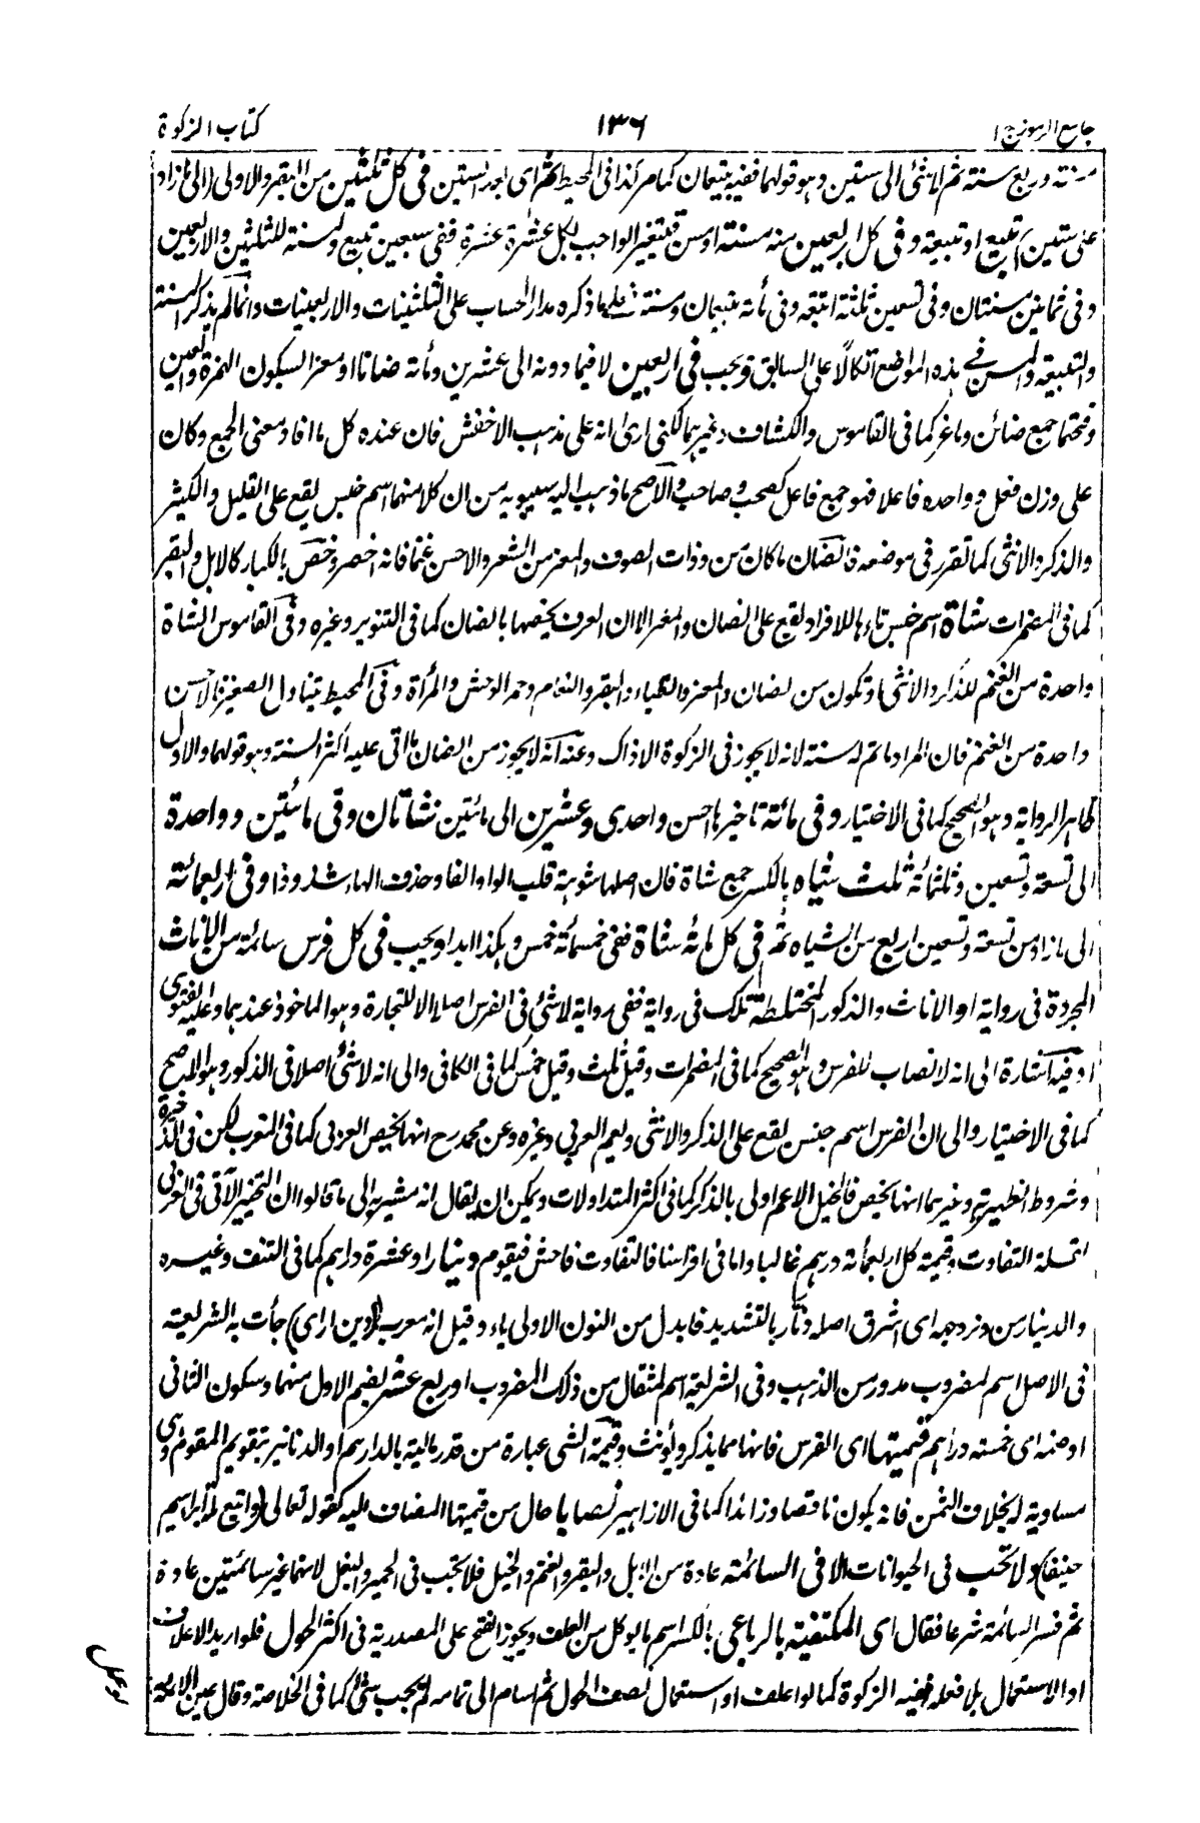 جامع الرموز ج ١
١٣٦
كتاب الزكوة
مسنة وربع مسنة ثم لا شئ الى ستين وهو قولهما ففيه تبيعان كما مر كذا فى المحيط ثم اى بعد الستين فى كل ثلثين من البقر والاولى (الى ما زاد
على ستين) تبيع او تبيعة وفى كل اربعين منه مسنة او مسن فيتغير الواجب بكل عشرة عشرة ففى سبعين تبيع ومسنة للثلثين والاربعين
وفى ثمانين مسنتان وفى تسعين ثلثة اتبعة وفى مأة تبيعان ومسنة فلما ذكره مدار الحساب على الثلثينات والاربعينات وانما لم يذكر المسنة
والتبيعة والمسن فى هذه المواضع اتكالا على السابق ويجب فى اربعين لا فيما دونه الى عشرين ومأة ضانا او معزا بسكون الهمزة والعين
وفتحهما جمع ضائن وماعز كما فى القاموس والكشاف وغيرهما لكنى ارى انه على مذهب الاخفش فان عنده كل ما افاد معنى الجمع وكان
على وزن فعل وواحده فاعلا فهو جمع فاعل كصحب وصاحب والاصح ما ذهب اليه سيبويه من ان كلا منهما اسم جنس يقع على القليل والكثير
والذكر والانثى كما تقرر فى موضعه فالضان ما كان من ذوات الصوف والمعز من الشعر والاحسن غنما فانه اخصر وخص بالكبار كالابل والبقر
كما فى المضمرات شاة اسم جنس تاءها للافراد يقع على الضان والمعز الا ان العرف يخصها بالضان كما فى التنوير وغيره وفى القاموس الشاة
واحدة من الغنم للذكر والانثى او تكون من الضان والمعز والظباء والبقر والنعام وحمر الوحش والمرأة وفى المحيط يتناول الصغير فالاحسن
واحدة من الغنم فان المراد ما تم له سنة لانه لا يجوز فى الزكوة الا ذاك وعنه انه لا يجوز من الضان ما اتى عليه اكثر السنة وهو قولهما والاول
ظاهر الرواية وهو الصحيح كما فى الاختيار وفى مائة تاخيرها احسن واحدى وعشرين الى مائتين شاتان وفى مائتين وواحدة
الى تسعة وتسعين وثلثمائة ثلث شياه بالكسر جمع شاة فان اصلها شوهة قلب الواو الفا وحذف الهاء شذوذا وفى اربعمائة
الى ما زاد من تسعة وتسعين اربع من الشياه ثم فى كل مائة شاة ففى خمسمائة خمس وهكذا ابدا ويجب فى كل فرس سائمة من الاناث
المجردة فى رواية او الاناث والذكور المختلطة تلك فى رواية ففى رواية لا شئ فى الفرس اصلا الا للتجارة وهو الماخوذ عندهما وعليه الفتوى
وفيه اشارة الى انه لا نصاب للفرس وهو الصحيح كما فى المضمرات وقيل ثلث وقيل خمس كما فى الكافى والى انه لا شئ اصلا فى الذكور وهو الاصح
كما فى الاختيار والى ان الفرس اسم جنس يقع على الذكر والانثى ويعم العربى وغيره وعن محمد رح انها يخص العربى كما فى المغرب لكن فى الذخيرة
وشروط الظهيرية وغيرهما انها يخص فالخيل الاعم اولى بالذكر كما فى اكثر المتداولات ويمكن ان يقال انه مشير الى ما قالوا ان التخيير الآتى فى العربى
لقلة التفاوت وقيمة كل اربعمأة درهم غالبا واما فى افراسنا فالتفاوت فاحش فيقوم دينارا وعشرة دراهم كما فى النتف وغيره
والدينار من دنر وجهه اى اشرق اصله دنار بالتشديد فابدل من النون الاولى ياء وقيل انه معرب (دين اراى) جأت به الشريعة
فى الاصل اسم لمضروب مدور من الذهب وفى الشريعة اسم لمثقال من ذلك المضروب او ربع عشر بضم الاول منهما وسكون الثانى
او ضمه اى خمسة دراهم قيمتها اى الفرس فانها مما يذكر ويؤنث وقيمة الشئ عبارة من قدر مالية بالدراهم او الدنانير بتقويم المقوم وهى
مساوية له بخلاف الثمن فانه يكون ناقصا وزائدا كما فى الازاهير نصابا حال من قيمتها المضاف اليه كقوله تعالى (واتبع ملة ابراهيم
حنيفا) ولا تجب فى الحيوانات الا فى السائمة عادة من الابل والبقر والغنم والخيل فلا تجب فى الحمير والبغل لانهما غير سائمتين عادة
ثم فسر السائمة شرعا فقال اى المكتفية بالرعى بالكسر اسم ما يوكل من العلف ويجوز الفتح على المصدرية فى اكثر الحول فلو اريد الاعلاف
او الاستعمال بلا فعله ففيه الزكوة كما لو اعلف او استعمال نصف الحول ثم اسام الى تمامه لم يجب شئ كما فى الخلاصة وقال عين الائمة